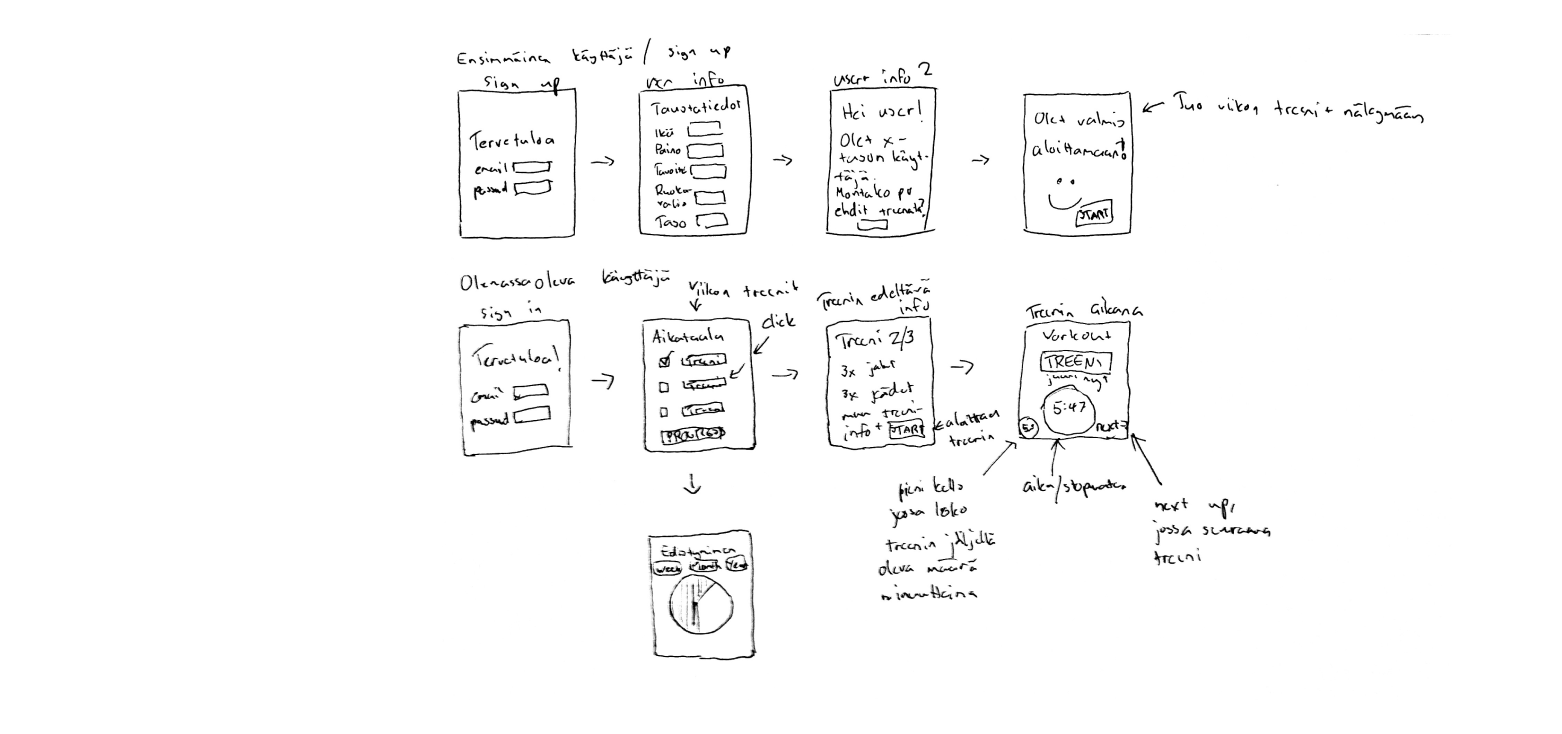 Ensimmäinen käyttäjä / sign up
sign up
user info
user info 2
Tervetuloa
email
passwd
Taustatiedot
Ikä
Paino
Tavoite
Ruoka
valio
Taso
Hei user!
Olet x-
tason käyt-
täjä.
Montako pv
ehdit treenata?
Olet valmis
aloittamaan!
START
Tuo viikon treeni+ näkymään
Olemassa oleva käyttäjä
sign in
Tervetuloa!
email
passwd
Viikon treenit
click
Aikataulu
Treeni
Treeni
Treeni
PROGRESS
Treenin edeltävä
info
Treeni 2/3
3x jalat
3x kädet
muu treeni-
info+
START
aloittaa
treenin
Treenin aikana
Workout
TREENI
juuri nyt
5:47
next
pieni kello
jossa koko
treenin jäljellä
oleva määrä
minuutteina
aika/stopwatch
next up,
jossa seuraava
treeni
Edistyminen
week
Month
Year